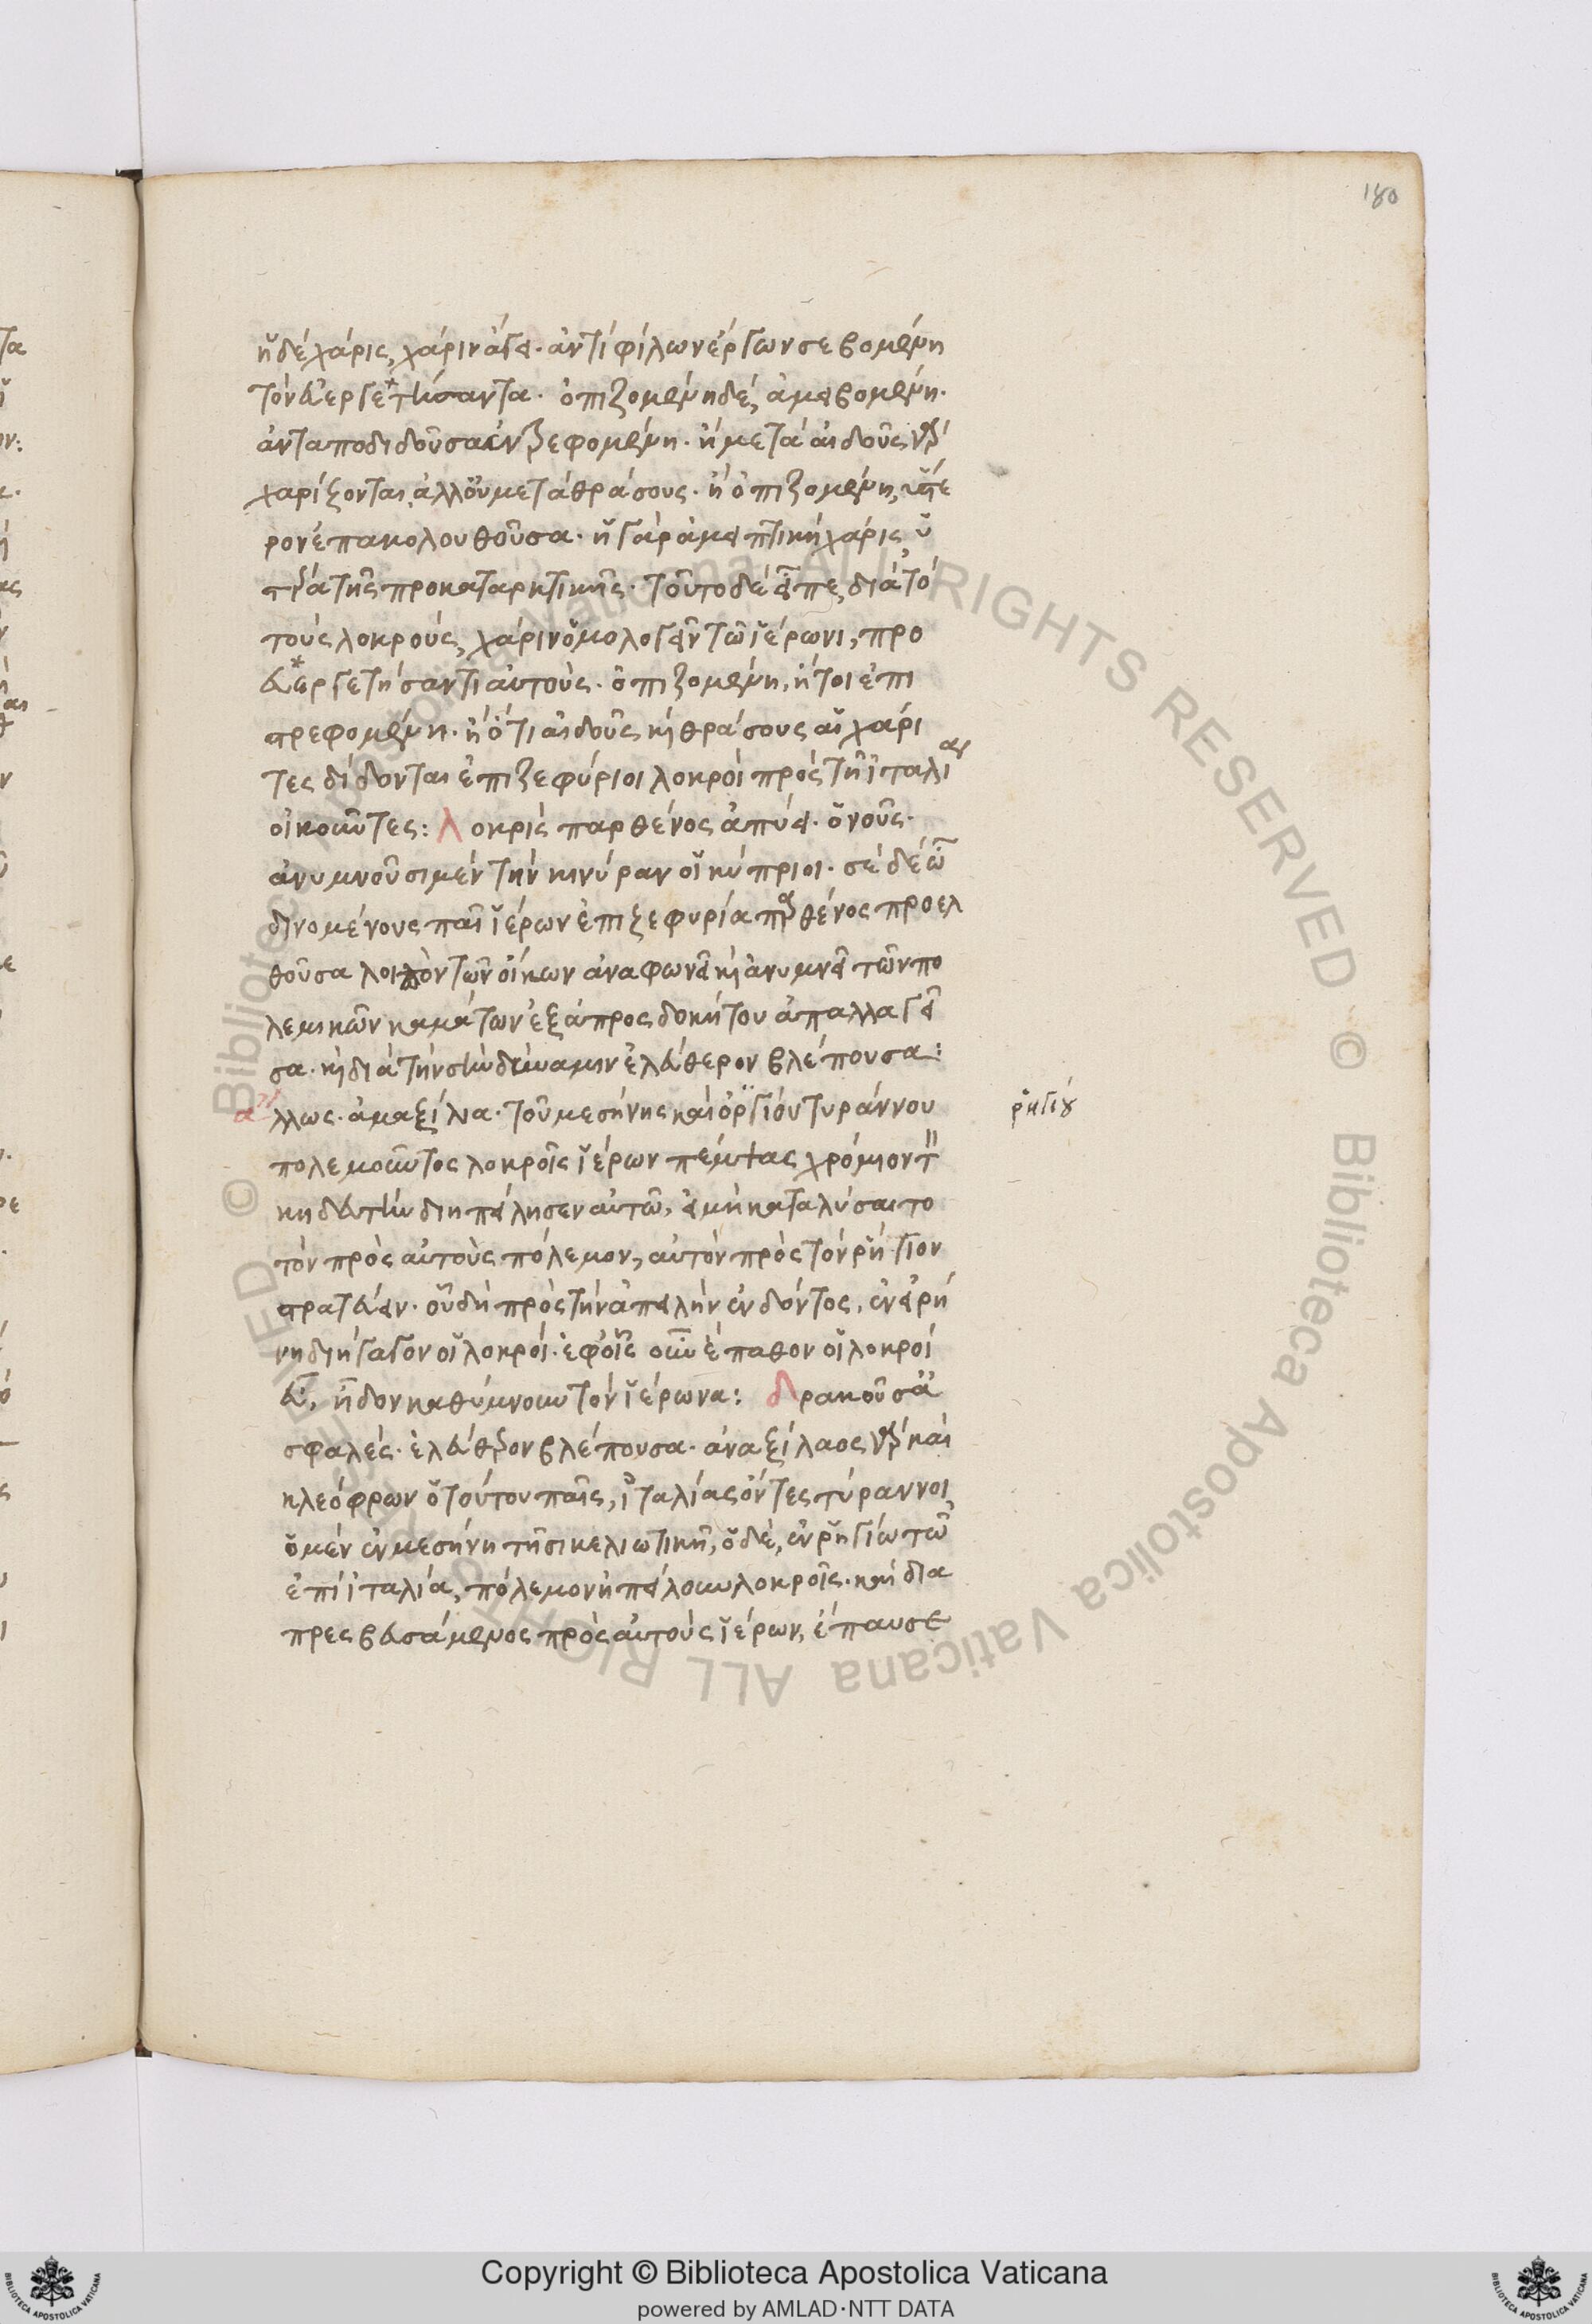 180
ἡ δὲ χάρις, χάριν ἄγει. ἀντὶ φίλων ἔργων σεβομένη
τὸν εὐεργετήσαντα. ὀπιζομένη δὲ, ἀμειβομένη.
ἀνταποδιδοῦσα ἐπιστρεφομένη. ἢ μετὰ αἰδοῦς γὰρ
χαρίζονται, ἀλλ' οὐ μετὰ θράσους. ἢ ὀπιζομένη, ὕστε
ρον ἐπακολουθοῦσα. ἡ γὰρ ἀμειπτικὴ χάρις ὑ
στέρα τῆς προκαταρκτικῆς. τοῦτο δὲ εἶπε, διὰ τὸ
τοὺς λοκροὺς, χάριν ὁμολογεῖν τῶ ἱέρωνι, προ
ευεργετήσαντι αὐτοὺς. ὀπιζομένη, ἤτοι ἐπι
στρεφομένη. ἢ ὅτι αἰδοῦς κὴ θράσους αἱ χάρι
τες δίδονται ἐπιζεφύριοι λοκροὶ πρὸς τῆ ἰταλία
οἰκοῦντες: Λοκρὶς παρθένος ἀπύει. ὁ νοῦς.
ἀνυμνοῦσι μὲν τὴν κινύραν οἱ κύπριοι. σὲ δὲ ὦ
δινομένους παῖ ἱέρων ἐπιζεφυρία παρθένος προελ
θοῦσα λοιπὸν τῶν οἴκων ἀναφωνεῖ κὴ ἀνυμνεῖ τῶν πο
λεμικῶν καμάτων ἐξ ἀπροσδοκήτου ἀπαλλαγεῖ
σα. κὴ διὰ τὴν σὴν δύναμιν ἐλεύθερον βλέπουσα:
ἄλλως. ἀναξίλα. τοῦ μεσήνης καὶ ὀργίου τυράννου
ῥηγίου
πολεμοῦντος λοκροῖς ἱέρων πέμψας χρόμιον τ
κηδευτὴν διηπείλησεν αὐτῶ, εἰ μὴ καταλύσαιτο
τὸν πρὸς αὐτοὺς πόλεμον, αὐτὸν πρὸς τὸν ῥήγιον
στρατεύειν. οὗ δὴ πρὸς τὴν ἀπειλὴν ἐνδόντος, ἐν εἰρή
νη διήγαγον οἱ λοκροί. ἐφ' οἷς οὖν ἔπαθον οἱ λοκροὶ
εὖ, ᾖδον καθύμνουν τὸν ἱέρωνα: Δρακοῦσ' ἀ
σφαλές. ἐλεύθερον βλέπουσα. ἀναξίλαος γὰρ καὶ
κλεόφρων ὁ τούτου παῖς, ἰταλίας ὄντες τύραννοι
ὁ μὲν ἐν μεσήνη τῆ σικελιωτικῆ, ὁ δὲ, ἐν ῥηγίω τῶ
ἐπὶ ἰταλία, πόλεμον ἠπείλουν λοκροῖς. καὶ δια
πρεσβευσάμενος πρὸς αὐτοὺς ἱέρων, ἔπαυσε
Copyright © Biblioteca Apostolica Vaticana
powered by AMLAD·NTT DATA